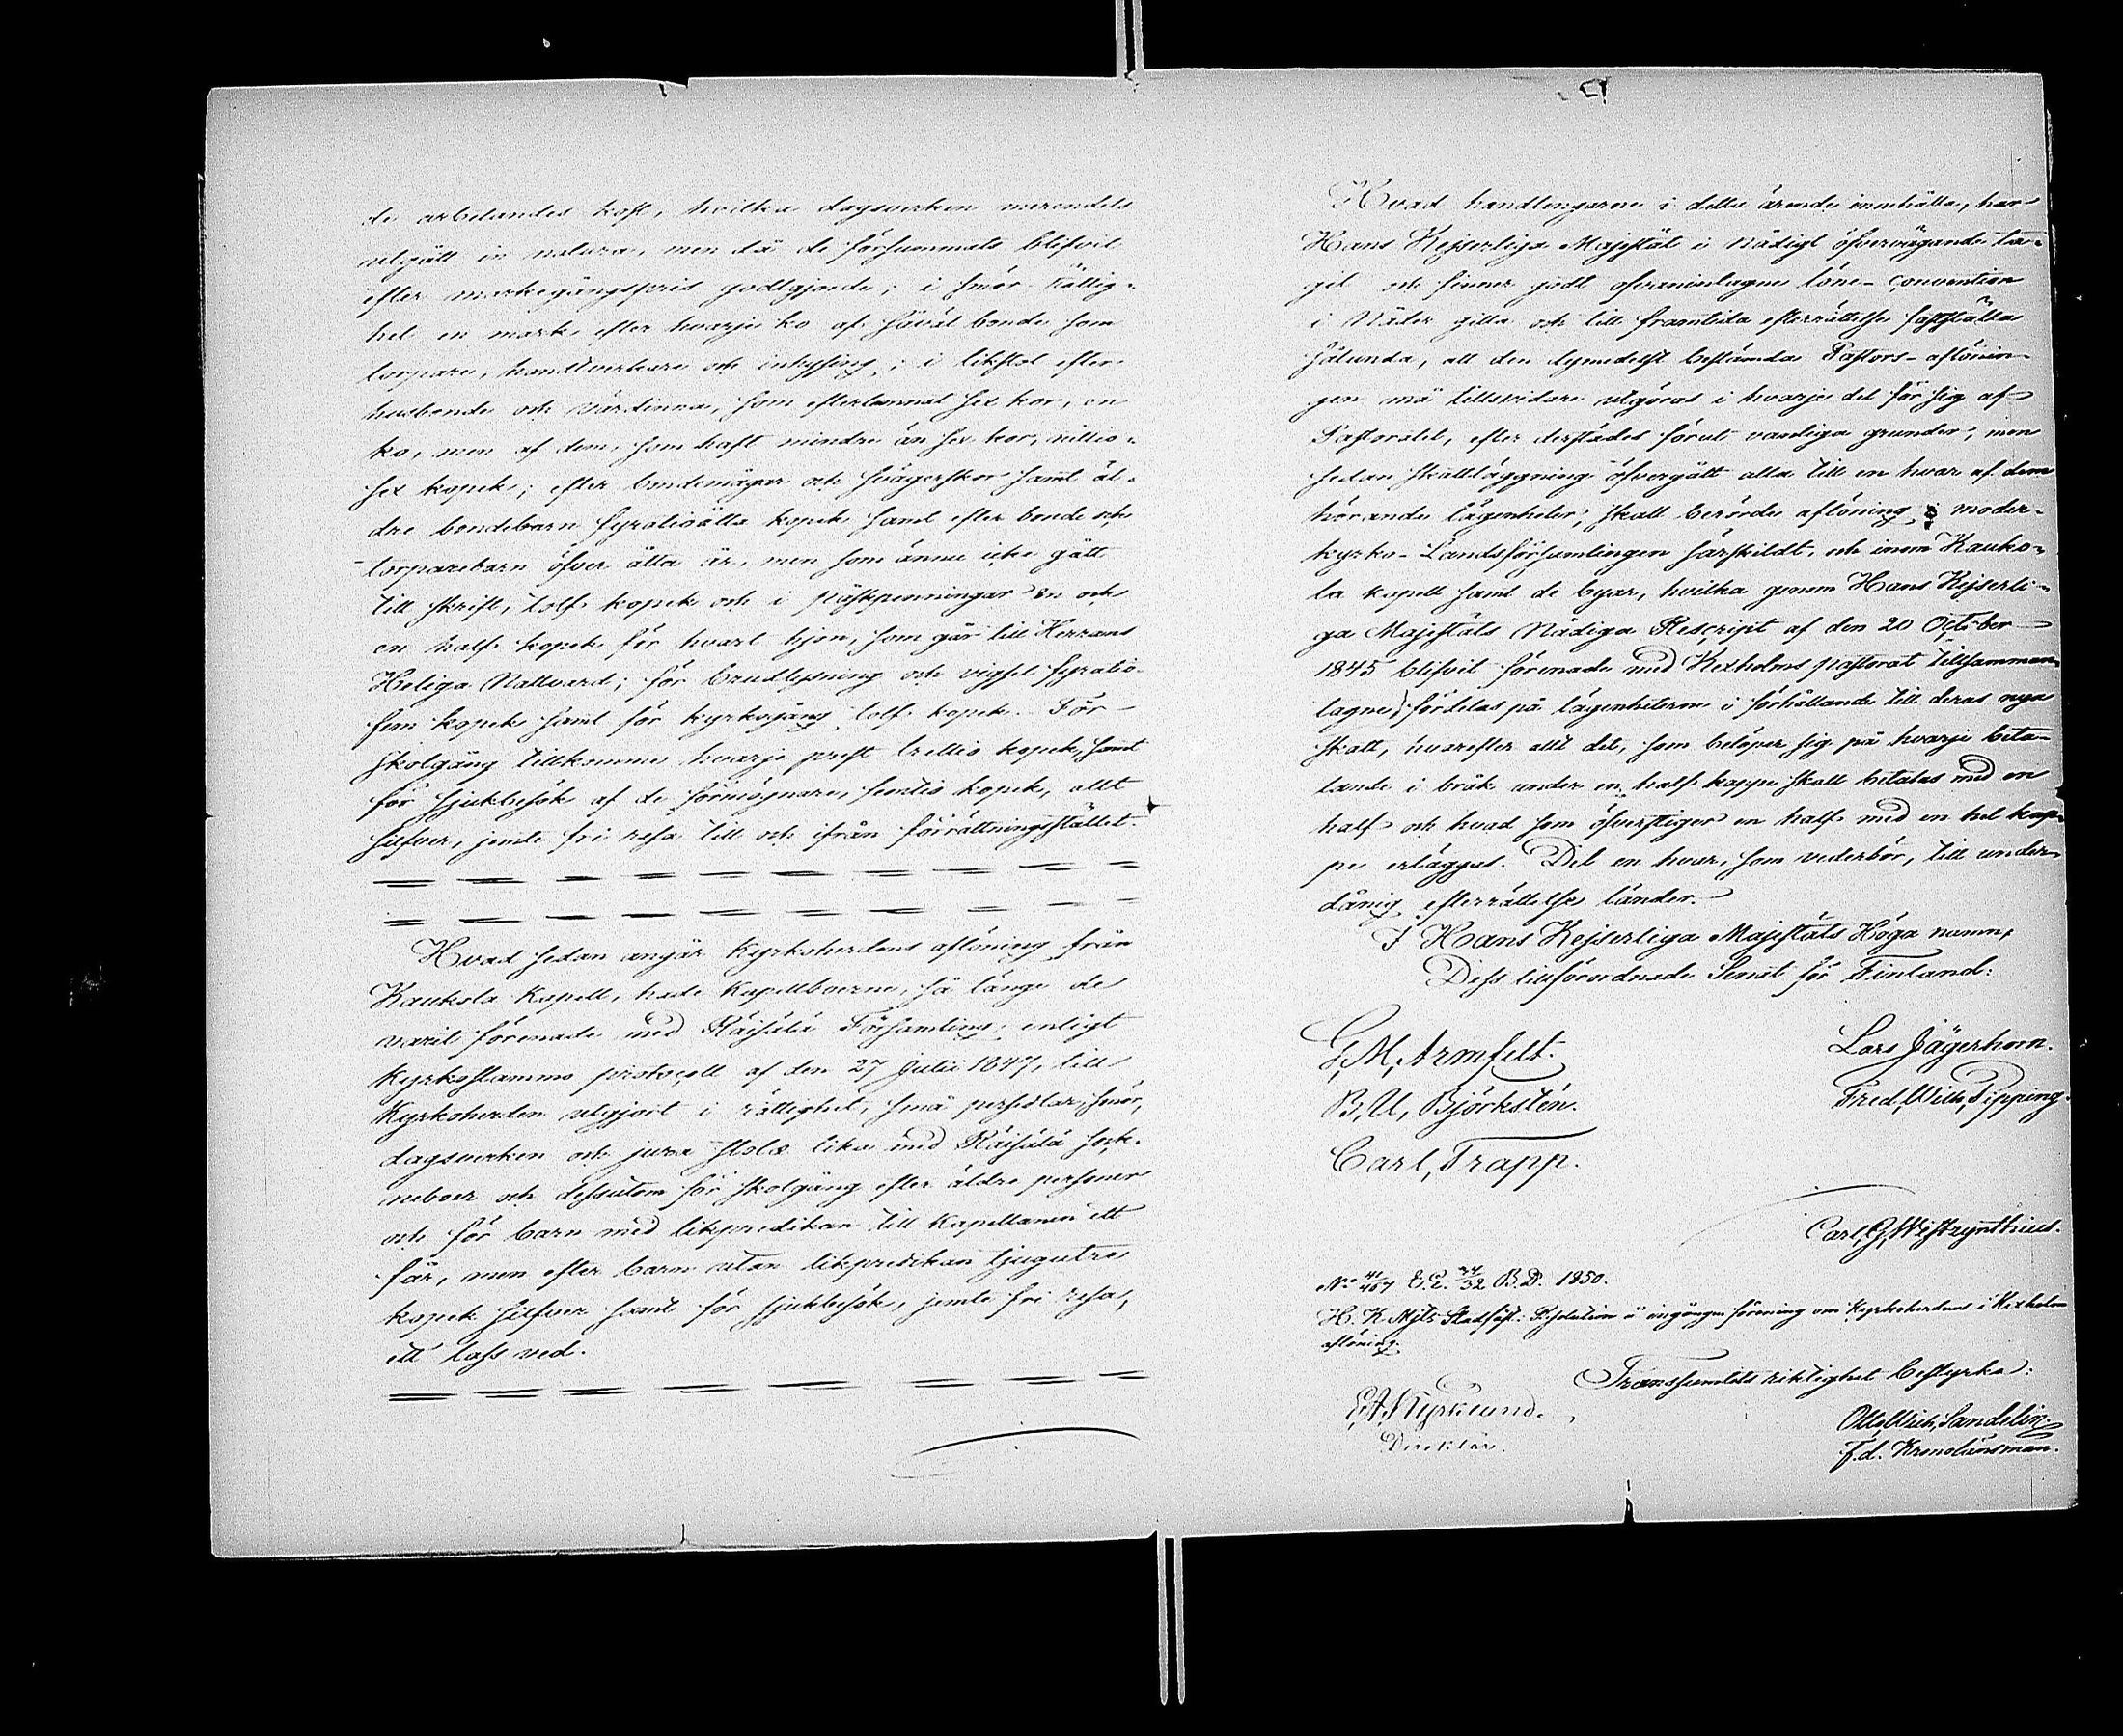 de arbetandes kost, hvilka dagsverken merendels
utgått in natura, men då de försummats blifvit
efter markegångspris godtgjorde; i smör rättig-
het en mark efter hvarje ko af såväl bonde som
torpare, handtverkare och inhysing; i likstol efter
husbonde och värdinna, som efterlemnat sex kor, en
ko, men af dem, som haft mindre än sex kor, nittio-
sex kopek; efter bondemågar och svägerskor samt äl-
dre bondebarn fyratioåtta kopek samt efter bonde och
torparebarn öfver åtta år, men som ännu icke gått
till skrift, tolf kopek och i påskpenningar en och
en half kopek för hvart hjon, som går till Herrans
Heliga Nattvard; för brudlysning och vigsel fyratio-
fem kopek samt för kyrkogång tolf kopek. För
skolgång tillkommer hvarje prest trettio kopek, samt
för sjukbesök af de förmögnare, femtio kopek, allt
silfver, jemte fri resa till och ifrån förrättningsstället.
Hvad sedan angår Kyrkoherdens aflöning från
Kaukola Kapell, hade Kapellboerne, så länge de
varit förenade med Räisälä Församling, enligt
Kyrkostämmo protocoll af den 27 Julii 1847, till
Kyrkoherden utgjort i rättighet, små persedlar, smör,
dagsverken och jura stolæ lika med Räisälä sock-
neboer och dessutom för skolgång efter äldre personer
och för barn med likpredikan till Kapellanen ett
får, men efter barn utan likpredikan tjugutre
kopek silfver samt för sjukbesök, jemte fri resa,
ett lass ved.
Hvad handlingarne i detta ärende innehålla, har
Hans Kejserliga Majestät i nådigt öfvervägande ta-
git och finner godt ofvanintagne löne-convention
i Nåder gilla och till framtida efterrättelse fastställa
sålunda, att den dymedelst bestämda Pastors-aflönin-
gen må tillsvidare utgöras i hvarje del för sig af
Pastoratet, efter derstädes förut vanliga grunder, men
sedan skattläggning öfvergått alla till en hvar af dem
hörande lägenheter, skall berörde aflöning i moder-
kyrko-Landsförsamlingen särskildt, och inom Kauko-
la kapell samt de byar, hvilka genom Hans Kejserli-
ga Majestäts Nådiga Rescript af den 20 October
1845 blifvit förenade med Kexholms pastorat tillsamman-
tagne, fördelas på lägenheterne i förhållande till deras nya
skatt, hvarefter allt det, som belöper sig på hvarje beta-
lande i bråk under en half kappe skall betalas med en
half och hvad som öfverstiger en half med en hel kap-
pe erläggas. Det en hvar, som vederbör, till under-
dånig efterrättelse länder.
I Hans Kejserliga Majestäts Höga namn,
Dess tillförordnade Senat för Finland:
G, M, Armfelt.
Lars Jägerhorn.
B, U, Björkstén.
Fred, Wilh, Pipping.
Carl, Trapp.
Carl, G, Westzynthius.
No 41/467 E. E. 34/32 B. D. 1850.
H. K. Mjts Stadfäst: Resolution å ingången förening om Kyrkoherdens i Kexholm
aflöning.
Transsumtets riktighet bestyrka:
E, A, Kyrklund.
Direktör.
Otto, Ulrich, Sandelin.
F. d. Kronolänsman.